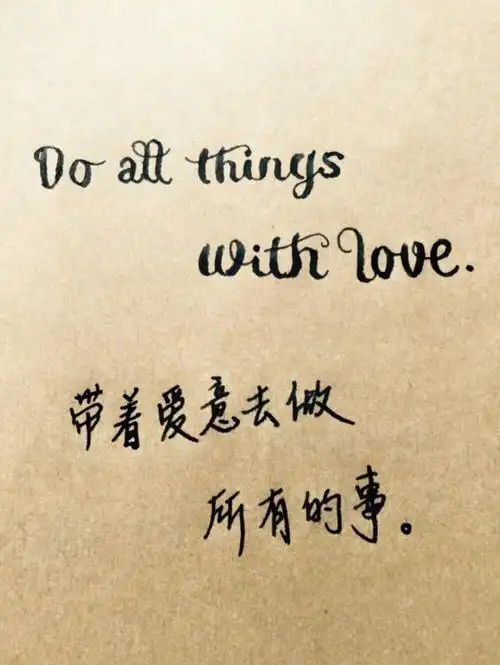 Do all things
with love.
带着爱意去做
所有的事。